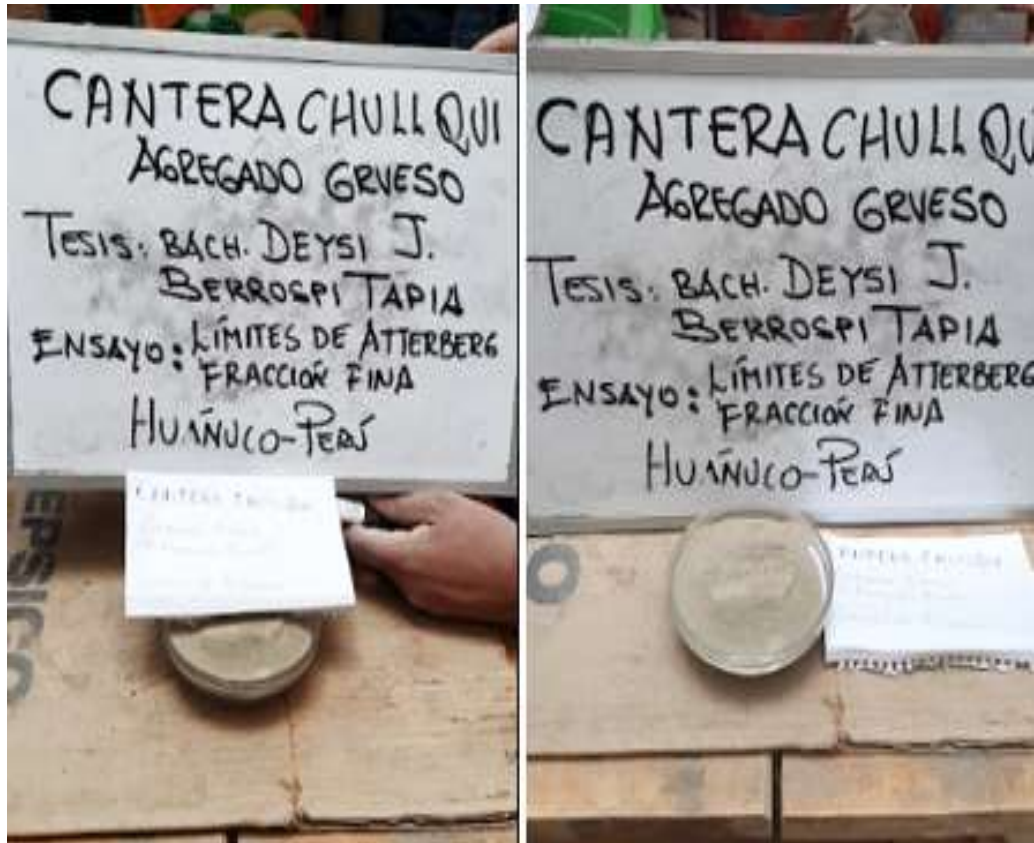 CANTERA CHULLQUI
AGREGADO GRUESO
TESIS: BACH. DEYSI J.
BERROSPI TAPIA
ENSAYO: LÍMITES DE ATTERBERG
FRACCIÓN FINA
HUÁNUCO-PERÚ
CANTERA
EPSICO
CANTERA CHULLQU
AGREGADO GRUESO
TESIS: BACH. DEYSI J.
BERROSPI TAPIA
ENSAYO: LÍMITES DE ATTERBERG
FRACCIÓN FINA
HUÁNUCO-PERÚ
O
CANTERA